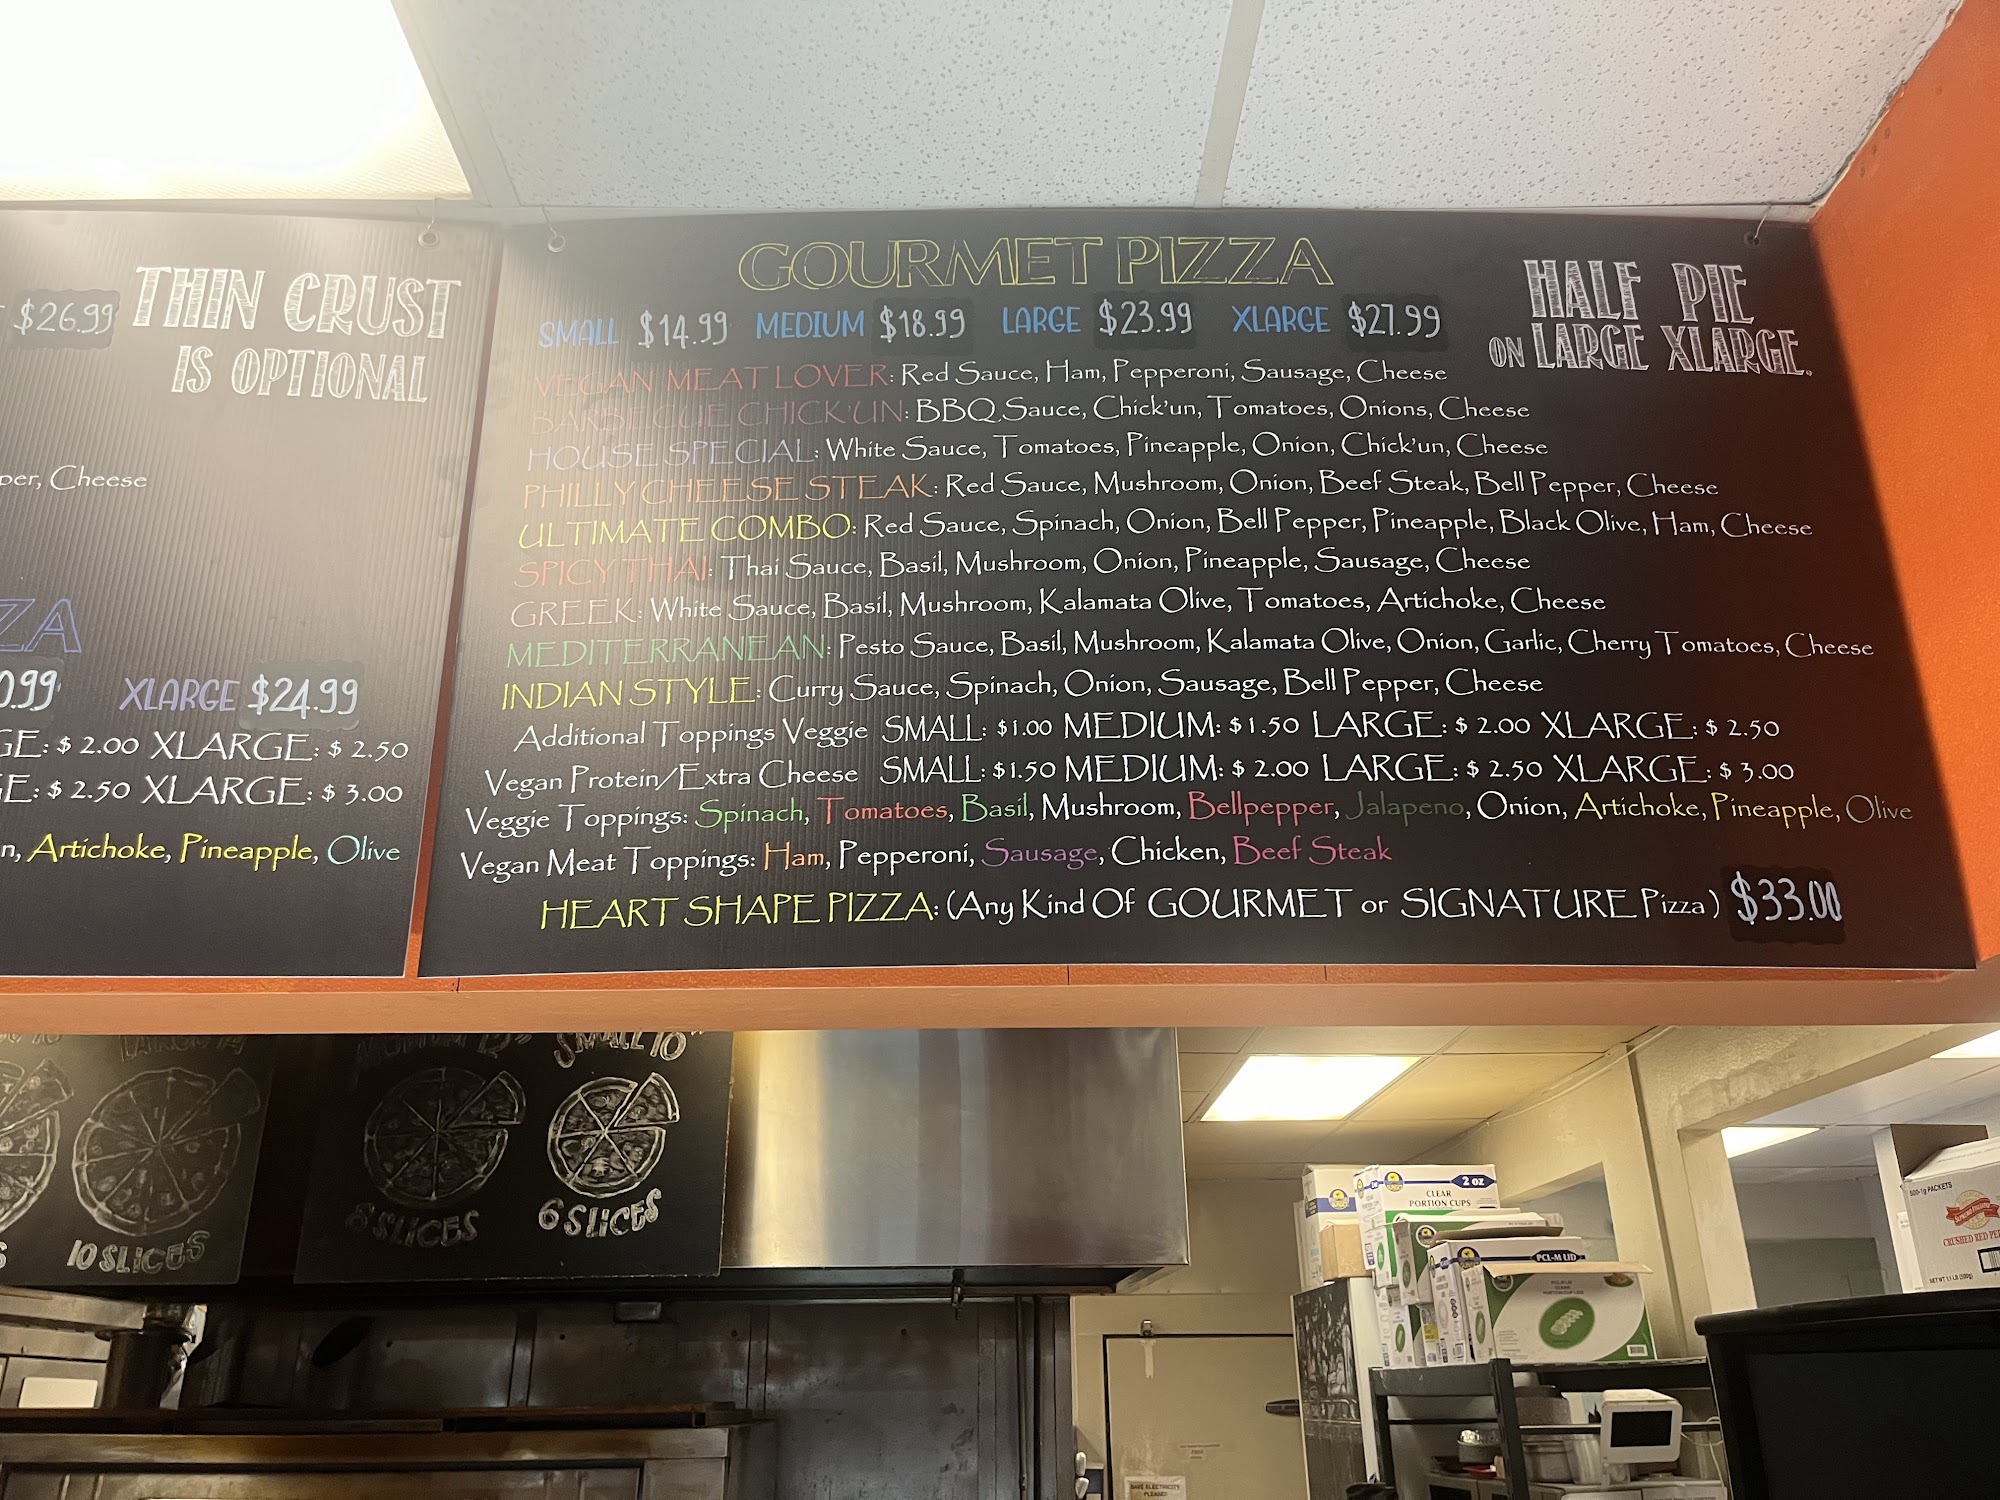 $26.99
THIN CRUST
IS OPTIONAL
Cheese
XLARGE $24.99
$ 2.00 XLARGE: $ 2.50
$ 2.50 XLARGE: $ 3.00
Artichoke, Pineapple, Olive
GOURMET PIZZA
SMALL $14.99 MEDIUM $18.99 LARGE $23.99 XLARGE $27.99
HALF PIE
ON LARGE XLARGE.
VEGAN MEAT LOVER: Red Sauce, Ham, Pepperoni, Sausage, Cheese
BARBECUE CHICK'UN: BBQ Sauce, Chick'un, Tomatoes, Onions, Cheese
HOUSE SPECIAL: White Sauce, Tomatoes, Pineapple, Onion, Chick'un, Cheese
PHILLY CHEESE STEAK: Red Sauce, Mushroom, Onion, Beef Steak, Bell Pepper, Cheese
ULTIMATE COMBO: Red Sauce, Spinach, Onion, Bell Pepper, Pineapple, Black Olive, Ham, Cheese
SPICY THAI: Thai Sauce, Basil, Mushroom, Onion, Pineapple, Sausage, Cheese
GREEK: White Sauce, Basil, Mushroom, Kalamata Olive, Tomatoes, Artichoke, Cheese
MEDITERRANEAN: Pesto Sauce, Basil, Mushroom, Kalamata Olive, Onion, Garlic, Cherry Tomatoes, Cheese
INDIAN STYLE: Curry Sauce, Spinach, Onion, Sausage, Bell Pepper, Cheese
Additional Toppings Veggie SMALL: $1.00 MEDIUM: $1.50 LARGE: $ 2.00 XLARGE: $ 2.50
Vegan Protein/Extra Cheese SMALL: $1.50 MEDIUM: $ 2.00 LARGE: $ 2.50 XLARGE: $ 3.00
Veggie Toppings: Spinach, Tomatoes, Basil, Mushroom, Bellpepper, Jalapeno, Onion, Artichoke, Pineapple, Olive
Vegan Meat Toppings: Ham, Pepperoni, Sausage, Chicken, Beef Steak
HEART SHAPE PIZZA: (Any Kind Of GOURMET or SIGNATURE Pizza) $33.00
SMALL 10"
10 SLICES
8 SLICES
6 SLICES
2 OZ
CLEAR
PORTION CUPS
PCL-M LID
500-1g PACKETS
CRUSHED RED
NET WT 1.1 LB (500g)
SAVE ELECTRICITY
PLEASE!